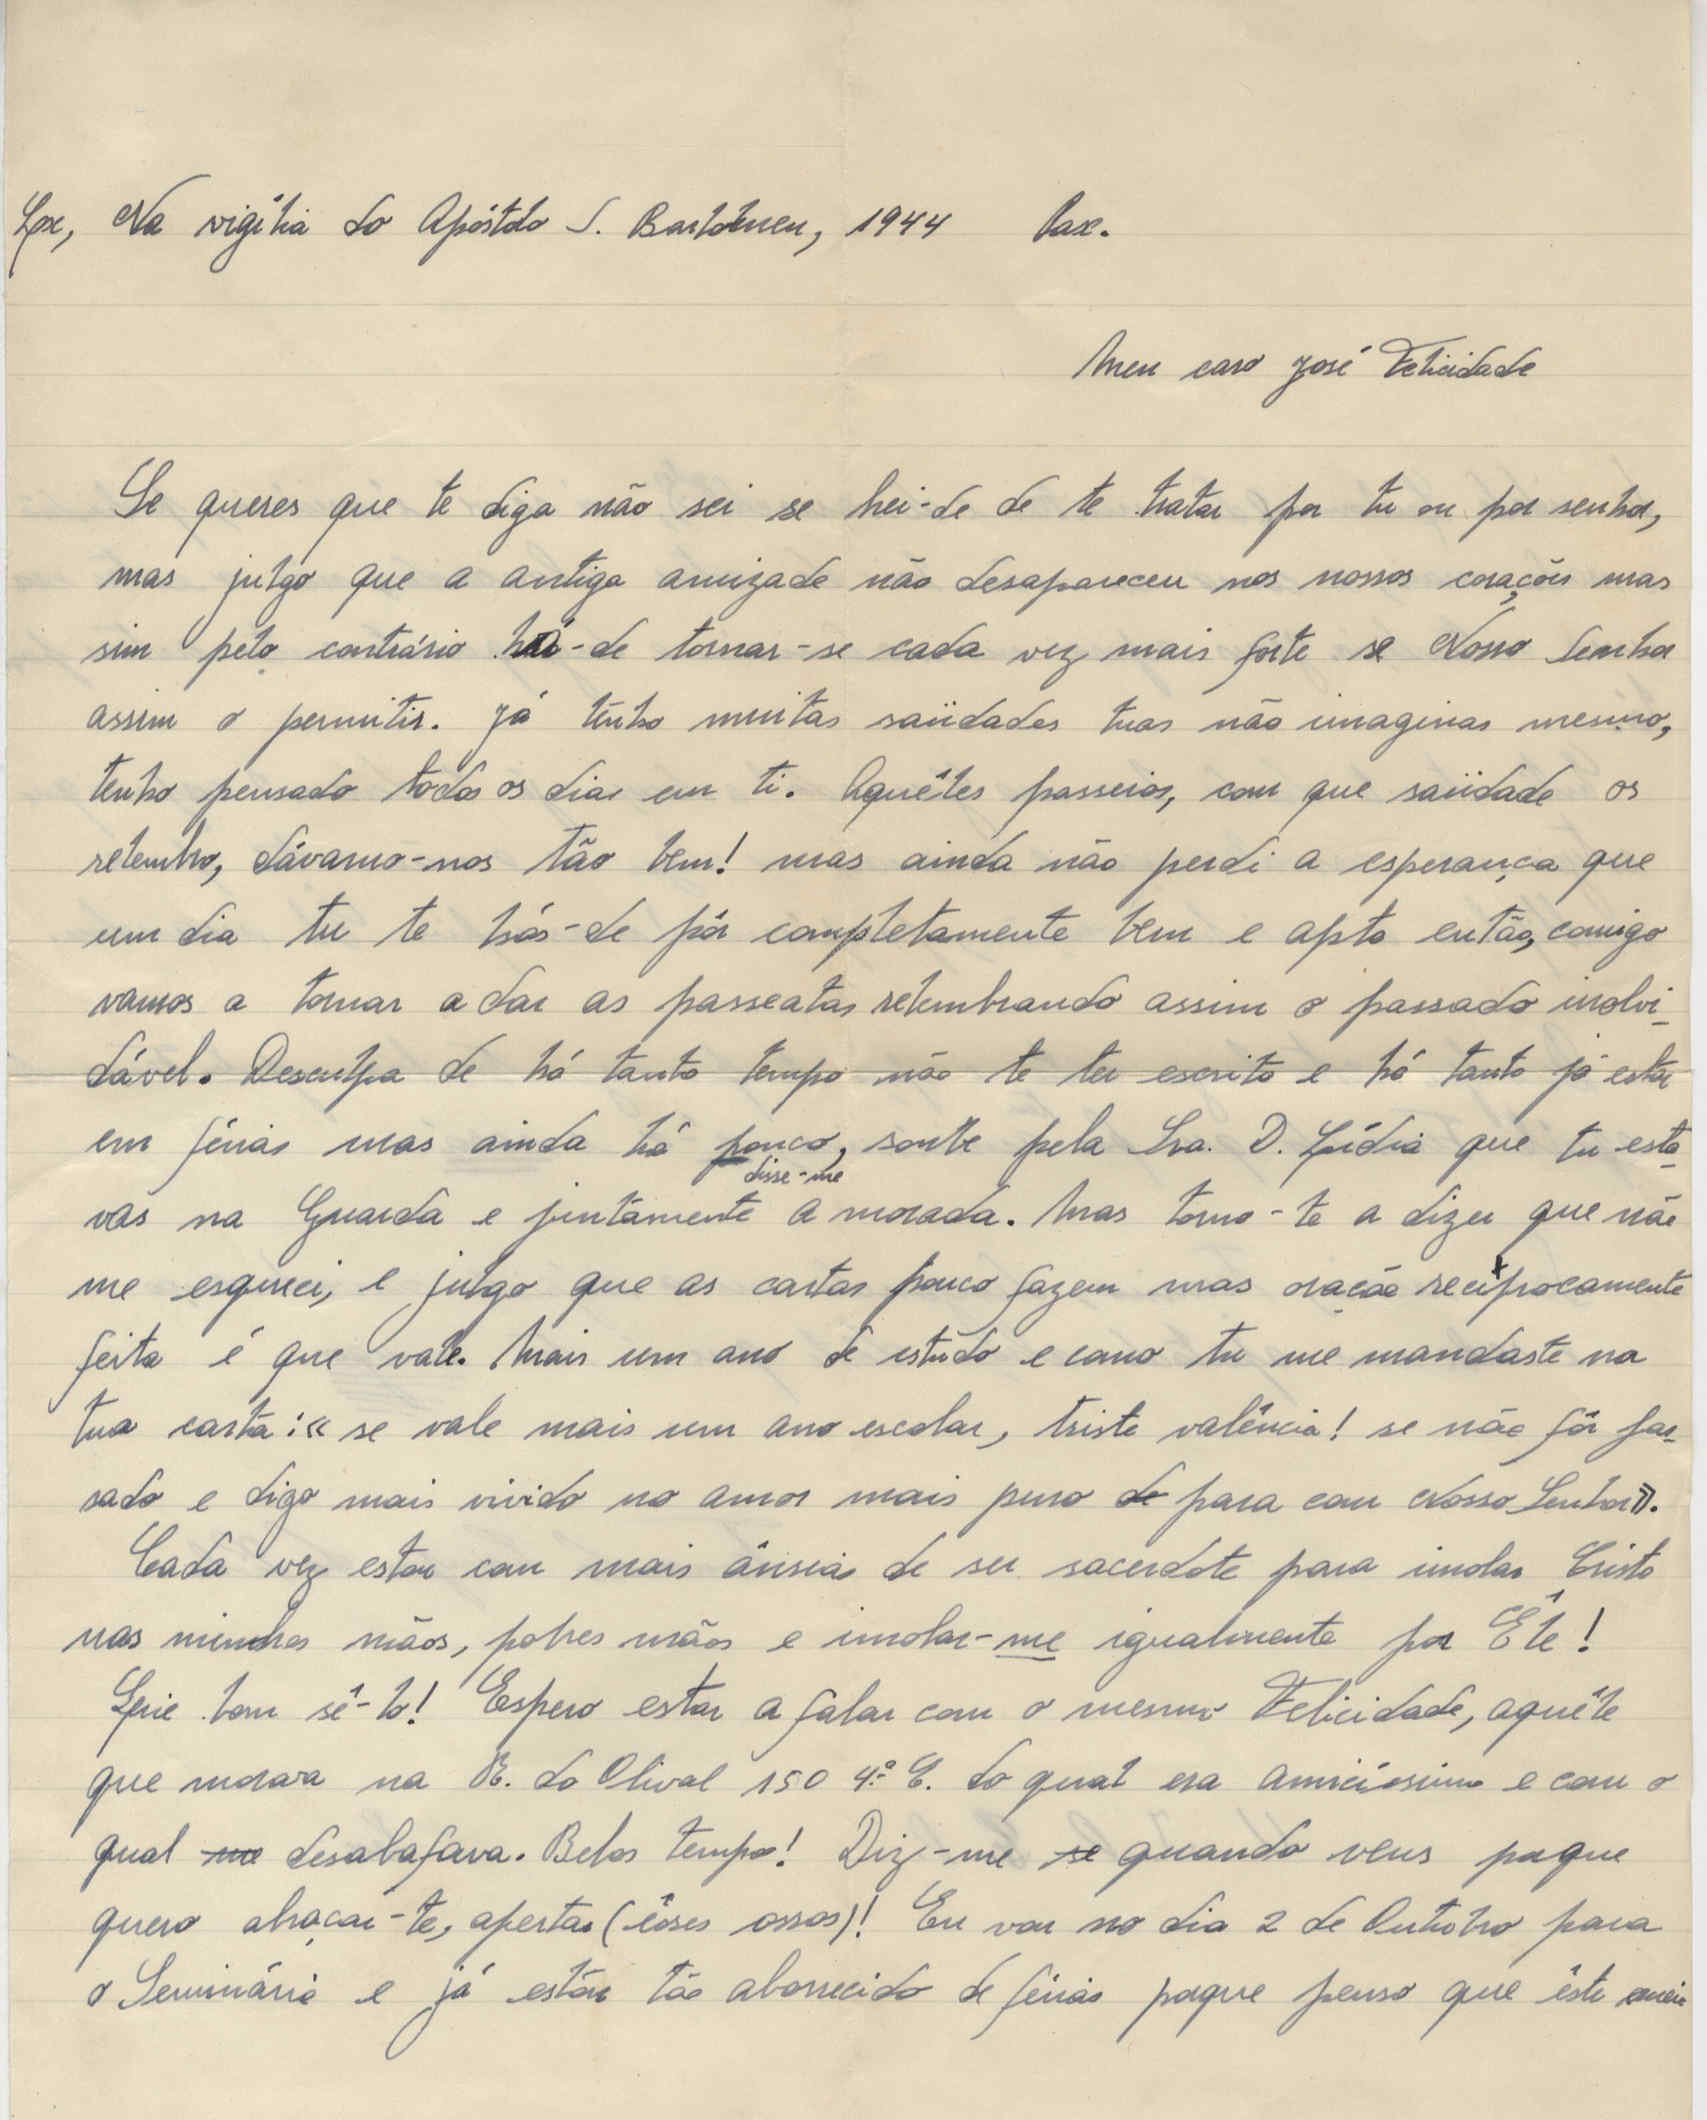 Lx, Na vigília do Apóstolo S. Bartolomeu, 1944 Pax.
Meu caro José Felicidade
Se queres que te diga não sei se hei-de de te tratar por tu ou por senhor,
mas julgo que a antiga amizade não desapareceu nos nossos corações mas
sim pelo contrário há-de tornar-se cada vez mais forte se Nosso Senhor
assim o permitir. Já tenho muitas saüdades tuas não imaginas mesmo,
tenho pensado todos os dias em ti. Aquêles passeios, com que saüdade os
relembro, dávamo-nos tão bem! mas ainda não perdi a esperança que
um dia tu te hás-de pôr completamente bem e apto então, comigo
vamos a tornar a dar as passeatas relembrando assim o passado inolvi-
dável. Desculpa de há tanto tempo não te ter escrito e há tanto já estar
em férias mas ainda há pouco, soube pela Sra. D. Lídia que tu esta-
disse-me
vas na Guarda e juntamente a morada. Mas torno-te a dizer que não
me esqueci, e julgo que as cartas pouco fazem mas oração recìprocamente
feita é que vale. Mais um ano de estudo e como tu me mandaste na
tua carta: « se vale mais um ano escolar, triste valência! se não fôr pas-
sado e digo mais vivido no amor mais puro de para com Nosso Senhor».
Cada vez estou com mais ânsias de ser sacerdote para imolar Cristo
nas minhas mãos, pobres mãos e imolar-me igualmente por Êle!
Que bom sê-lo! Espero estar a falar com o mesmo Felicidade, aquêle
que morava na R. do Olival 150 4.º E. do qual era amicíssimo e com o
qual me desabafava. Belos tempos! Diz-me se quando vens porque
quero abraçar-te, apertar (êsses ossos)! Eu vou no dia 2 de Outubro para
o Seminário e já estou tão aborrecido de férias porque penso que êste